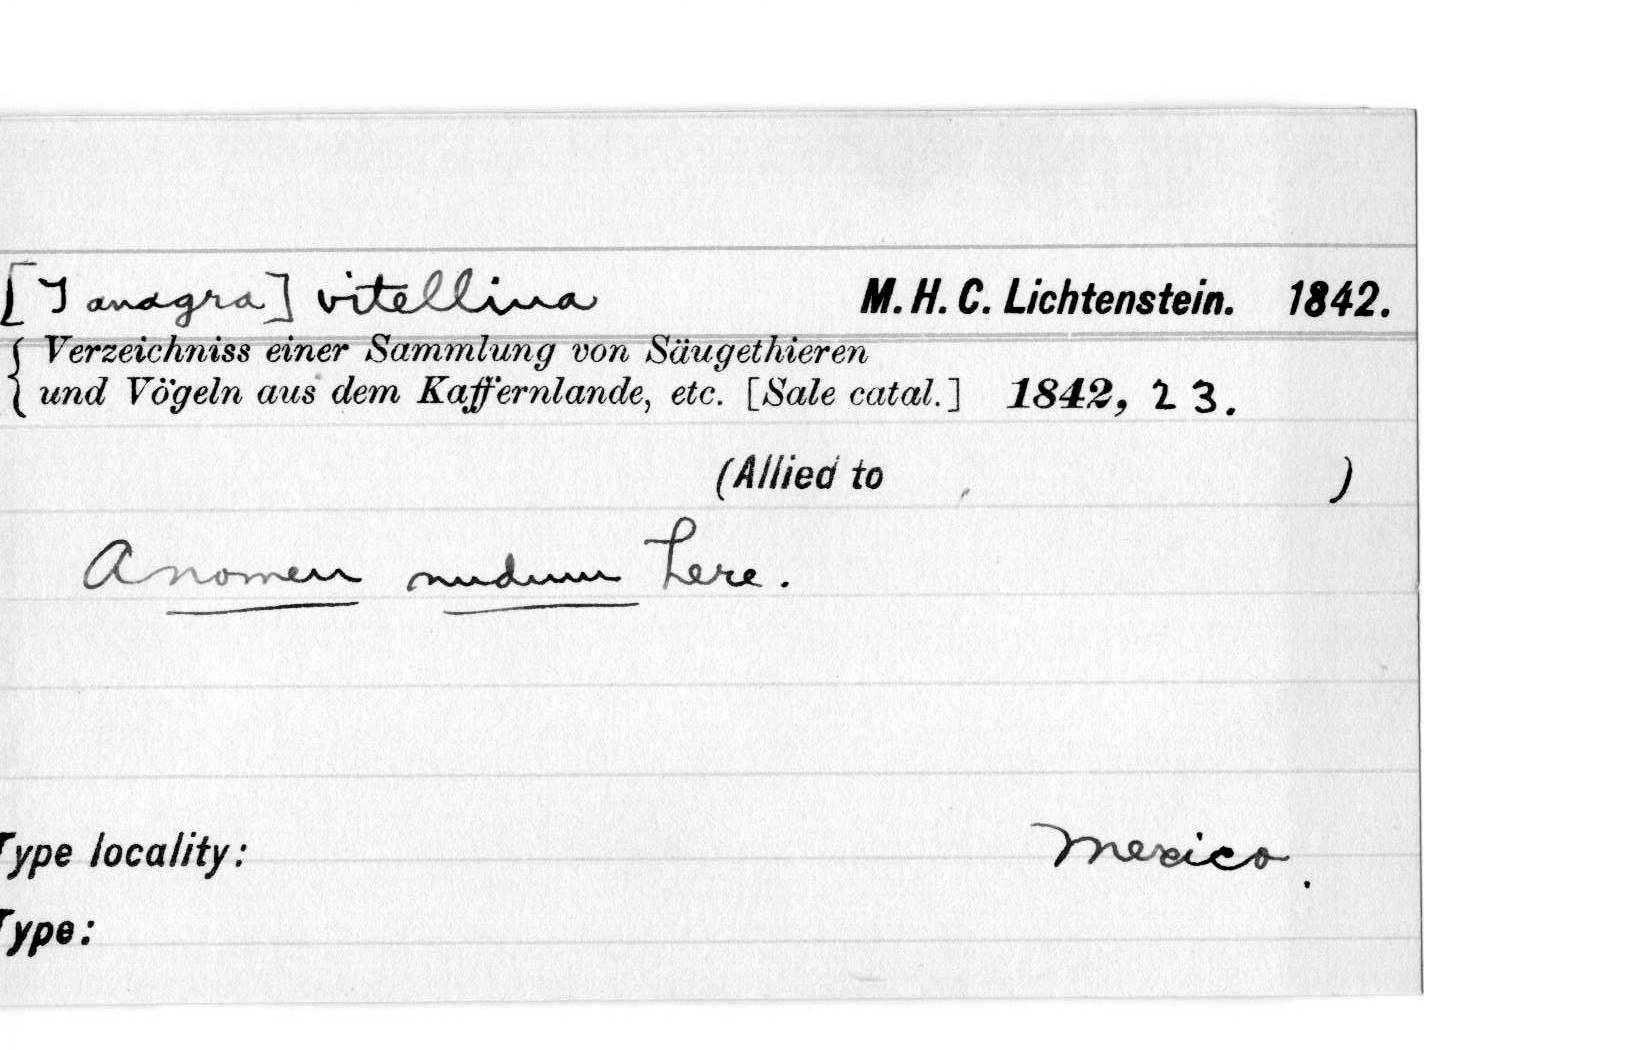 [Tanagra] vitellina M. H. C. Lichtenstein. 1842.
Verzeichniss einer Sammlung von Säugethieren
und Vögeln aus dem Kaffernlande, etc. [Sale catal.] 1842, 23.
(Allied to )
A nomen nudum here.
Type locality: Mexico.
Type: